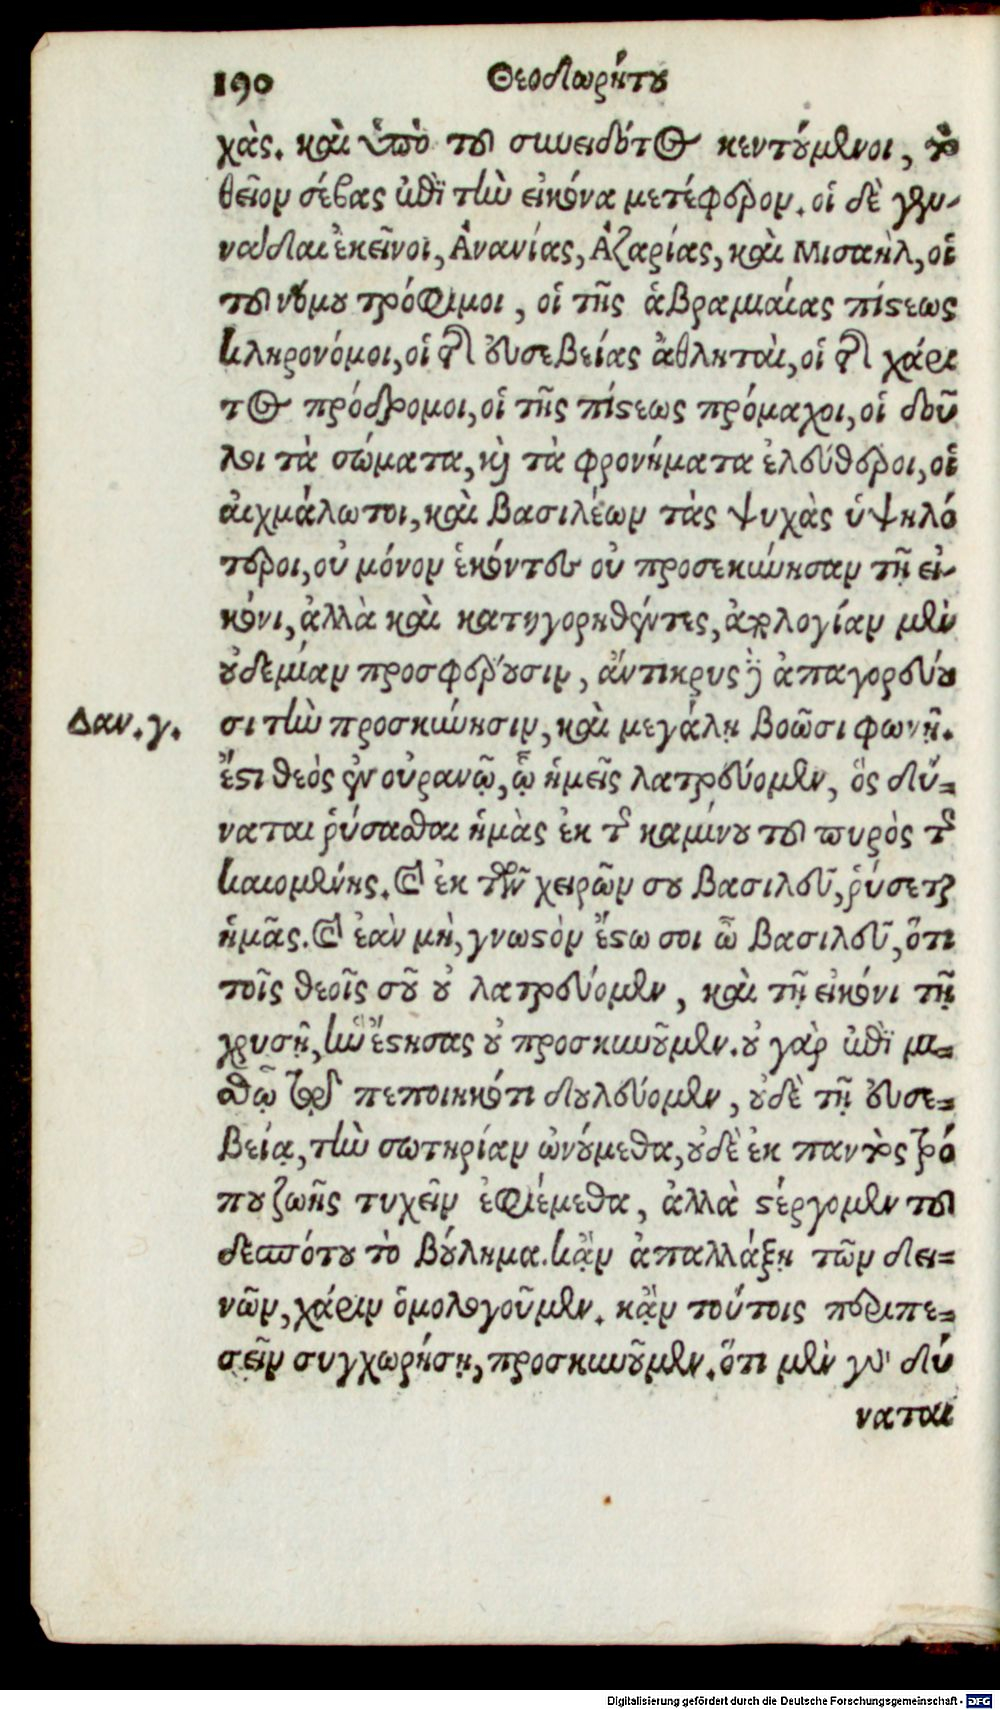 190 Θεοδωρήτου
χὰς. καὶ ὑπὸ τοῦ συνειδότος κεντούμενοι, τὸ
θεῖον σέβας ἐπὶ τὴν εἰκόνα μετέφερον. οἱ δὲ γεν-
νάδαι ἐκεῖνοι, Ἀνανίας, Ἀζαρίας, καὶ Μισαὴλ, οἱ
τοῦ νόμου τρόφιμοι, οἱ τῆς ἁβραμιαίας πίστεως
κληρονόμοι, οἱ τῆς εὐσεβείας ἀθληταὶ, οἱ τῆς χάρι
τος πρόδρομοι, οἱ τῆς πίστεως πρόμαχοι, οἱ δοῦ
λοι τὰ σώματα, καὶ τὰ φρονήματα ἐλεύθεροι, οἱ
αἰχμάλωτοι, καὶ βασιλέων τὰς ψυχὰς ὑψηλό
τεροι, οὐ μόνον ἑκόντες οὐ προσεκύνησαν τῇ εἰ-
κόνι, ἀλλὰ καὶ κατηγορηθέντες, ἀπολογίαν μὲν
οὐδεμίαν προσφέρουσιν, ἄντικρυς δὲ ἀπαγορεύου
Δαν. γ. σι τὴν προσκύνησιν, καὶ μεγάλῃ βοῶσι φωνῇ.
ἔστι θεὸς ἐν οὐρανῷ, ᾧ ἡμεῖς λατρεύομεν, ὃς δύ-
ναται ῥύσασθαι ἡμὰς ἐκ τῆς καμίνου τοῦ πυρὸς τῆς
καιομένης. καὶ ἐκ τῶν χειρῶν σου βασιλεῦ, ῥύσεται
ἡμᾶς. καὶ ἐὰν μὴ, γνωστὸν ἔστω σοι ὦ βασιλεῦ, ὅτι
τοῖς θεοῖς σοῦ οὐ λατρεύομεν, καὶ τῇ εἰκόνι τῇ
χρυσῇ, ἣν ἔστησας οὐ προσκυνοῦμεν. οὐ γὰρ ἐπὶ μι-
σθῷ τῷ πεποιηκότι δουλεύομεν, οὐδὲ τῇ εὐσε-
βείᾳ, τὴν σωτηρίαν ὠνούμεθα, οὐδὲ ἐκ παντὸς τρό
που ζωῆς τυχεῖν ἐφιέμεθα, ἀλλὰ στέργομεν τοῦ
δεσπότου τὸ βούλημα. κἂν ἀπαλλάξῃ τῶν δει-
νῶν, χάριν ὁμολογοῦμεν. κἂν τούτοις περιπε-
σεῖν συγχωρήσῃ, προσκυνοῦμεν. ὅτι μὲν γὰρ δύ
ναται
Digitalisierung gefördert durch die Deutsche Forschungsgemeinschaft - DFG